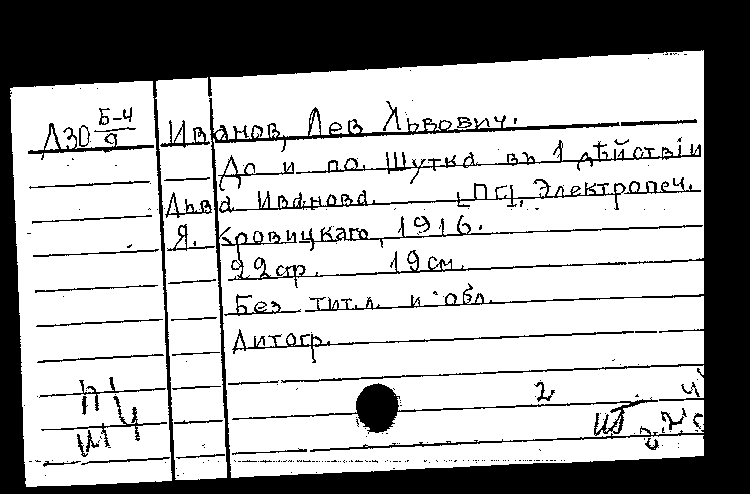 Л30 Б-4/9
Иванов, Лев Львович.
До и по. Шутка въ 1 дѣйствіи
Льва Иванова. [ПГ], Электропеч.
Я. Кровицкаго, 1916.
22 стр. 19 см.
Без тит. л. и обл.
Литогр.
2